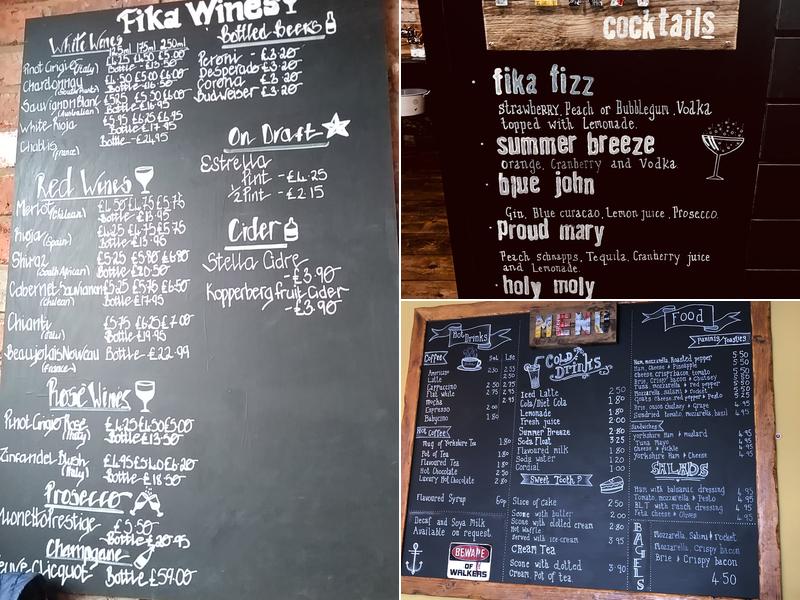 Fika Wines
White Wines
125ml 175ml 250ml
Pinot Grigio (Italy) £4.25 £4.50 £5.00
Bottle - £13.50
Chardonnay £4.50 £5.00 £6.00
Sauvignon Blanc
(Australian) Bottle £16.95
White Rioja £5.95 £6.25 £6.95
Bottle - £17.95
Chablis (France) Bottle - £24.95
Red Wines
Merlot (Chilean) £4.50 £4.75 £5.75
Bottle - £13.95
Rioja (Spain) £4.25 £4.75 £5.75
Bottle - £15.95
Shiraz £5.25 £5.80 £6.80
(South African) Bottle £20.50
Cabernet Sauvignon £5.25 £5.75 £6.50
(Chilean) Bottle - £17.95
Chianti £5.75 £6.25 £7.00
Bottle - £19.95
Beaujolais Nouveau Bottle - £22.99
(France)
Rose Wines
Pinot Grigio Rose £4.25 £4.50 £5.00
(Italy) Bottle £13.50
Zinfandel Blush £4.95 £5.40 £6.20
(Italy) Bottle - £18.50
Prosecco
Prestige £5.50
Bottle - £20.95
Champagne
Clicquot Bottle £59.00
Bottled Beers
Peroni - £3.20
Desperado £3.20
Corona - £3.20
Budweiser £3.20
On Draft
Estrella
Pint - £4.25
½ Pint - £2.15
Cider
Stella Cidre
- £3.90
Kopperberg fruit Cider
- £3.90
cocktails
fika fizz
strawberry, Peach or Bubblegum, Vodka
topped with Lemonade.
summer breeze
orange, Cranberry and Vodka
blue john
Gin, Blue curacao, Lemon juice, Prosecco.
Proud mary
Peach schnapps, Tequila, Cranberry juice
and Lemonade.
holy moly
MENU
Hot Drinks
Coffee Sml Lge
Americano
Latte
Cappuccino
Flat white
Mocha
Espresso
Babycino
Hot Coffee
Mug of Yorkshire Tea 1.80
Pot of Tea 1.80
Flavoured Tea 1.80
Hot Chocolate 2.50
Luxury Hot Chocolate 2.80
Flavoured Syrup 60p
Decaf and Soya Milk
Available on request.
BEWARE
OF
WALKERS
COLD DRINKS
Iced Latte 2.50
Cola/Diet Cola 1.80
Lemonade 1.80
Fresh juice 2.00
Summer Breeze 2.80
Soda Float 3.25
Flavoured milk 1.80
Soda water 1.20
Cordial 1.00
Sweet Tooth?
Slice of cake 2.50
Scone with butter 2.00
Scone with clotted cream 2.80
Hot Waffle
Served with ice-cream 3.95
CREAM TEA
Scone with clotted 3.90
Cream, Pot of tea.
Food
Paninis/Toasties
Ham, mozzarella, Roasted pepper 5.50
Ham, Cheese & Pineapple 5.50
Cheese, crispy bacon, tomato 5.50
Brie, Crispy bacon & chutney 5.50
Tuna, mozzarella & red pepper 5.50
Mozzarella, salami & rocket 5.50
Goats cheese, red pepper & Pesto 5.25
Brie, onion chutney & Grape 4.95
Sundried tomato, mozzarella, basil 4.50
Sandwiches
Yorkshire Ham & mustard 4.95
Tuna Mayo 4.95
Cheese & Pickle 4.95
Yorkshire Ham & Cheese 4.95
SALADS
Ham with balsamic dressing 4.95
Tomato, mozzarella & Pesto 4.95
BLT with ranch dressing 4.95
Feta cheese & Olives 4.95
BAGELS
Mozzarella, Salami & rocket
Mozzarella, Crispy bacon
Brie & Crispy bacon
4.50